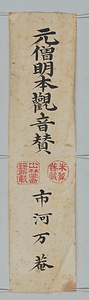 元僧明本觀音賛
市河万菴